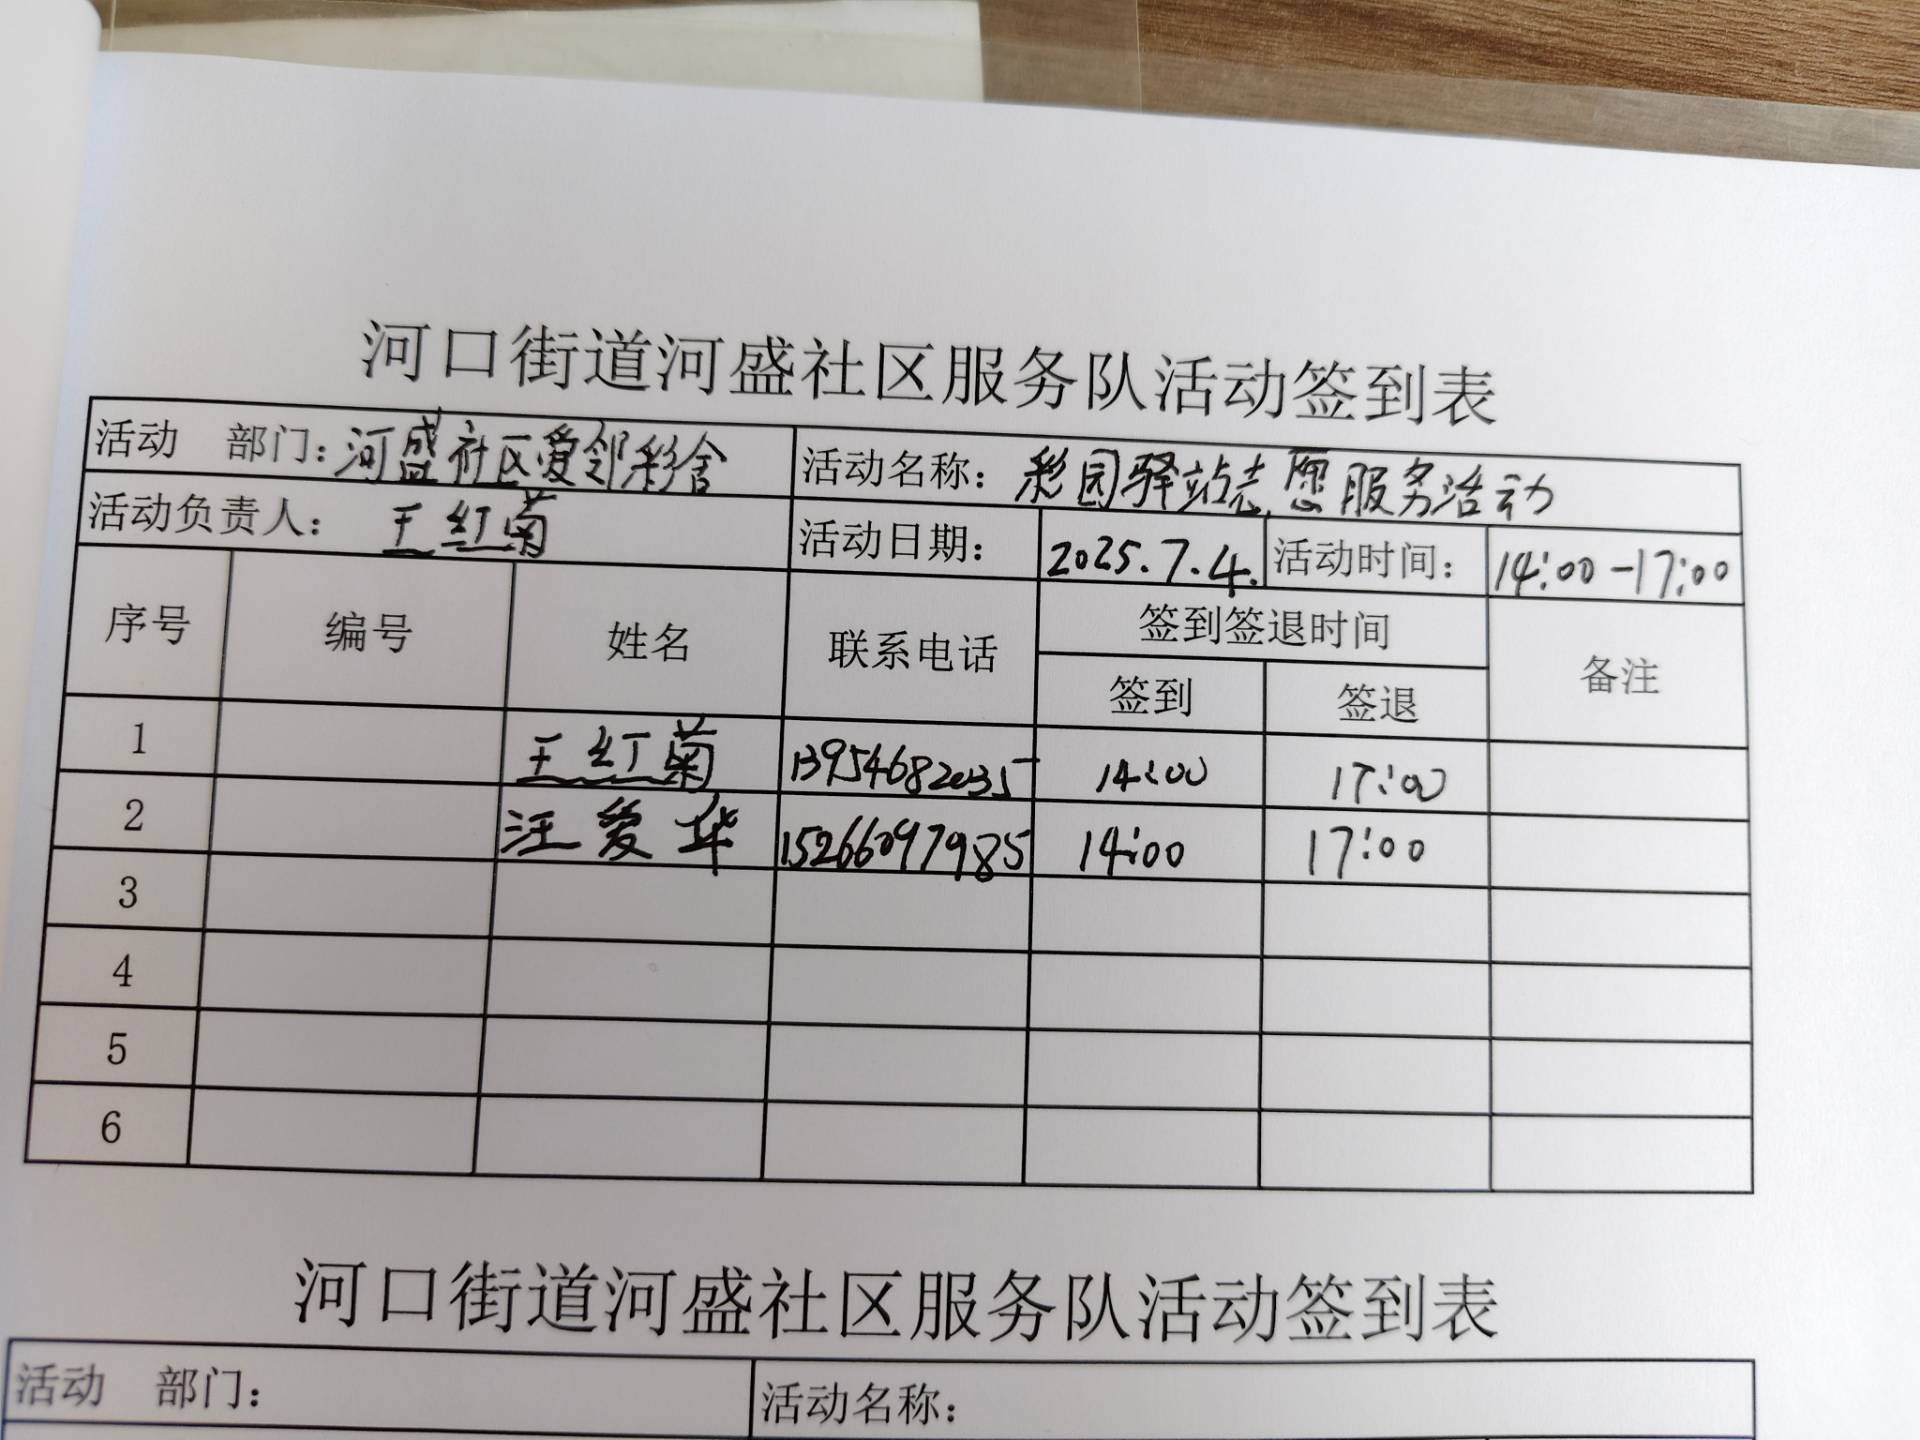 河口街道河盛社区服务队活动签到表
活动 部门：河盛社区爱邻彩舍 活动名称：彩园驿站志愿服务活动
活动负责人： 王红菊 活动日期： 2025.7.4. 活动时间： 14:00-17:00
序号 编号 姓名 联系电话 签到签退时间 备注
签到 签退
1 王红菊 13954682035 14:00 17:00
2 汪爱华 15266097985 14:00 17:00
3
4
5
6
河口街道河盛社区服务队活动签到表
活动 部门： 活动名称：